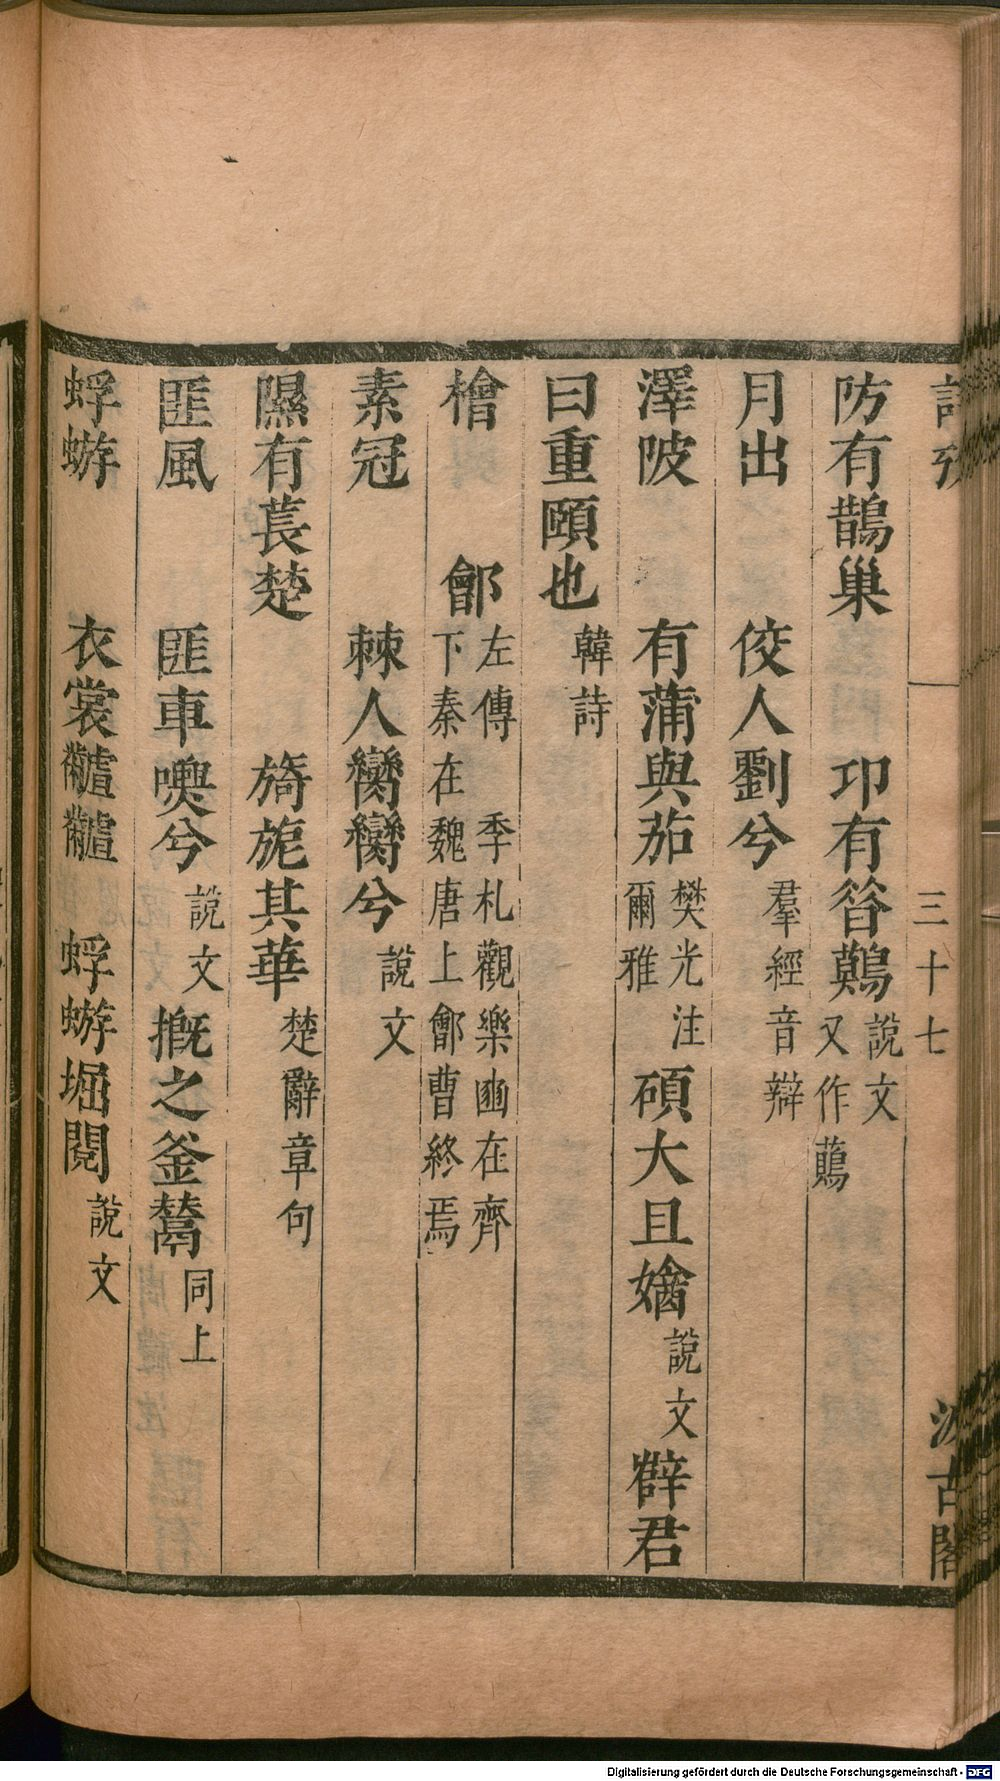 詩攷 三十七 汲古閣
防有鵲巢 卭有䈂鷏 說文 又作鷏
月出 佼人劉兮 羣經音辯
澤陂 有蒲與茄 樊光注爾雅 碩大且嬒 說文 薛君
曰重頤也 韓詩
檜 鄶 左傳 季札觀樂豳在齊下秦在魏唐上鄶曹終焉
素冠 棘人臠臠兮 說文
隰有萇楚 旖旎其華 楚辭章句
匪風 匪車㗫兮 說文 摡之釜鬵 同上
蜉蝣 衣裳𪓐𪓐 蜉蝣堀閱 說文
Digitalisierung gefördert durch die Deutsche Forschungsgemeinschaft - DFG